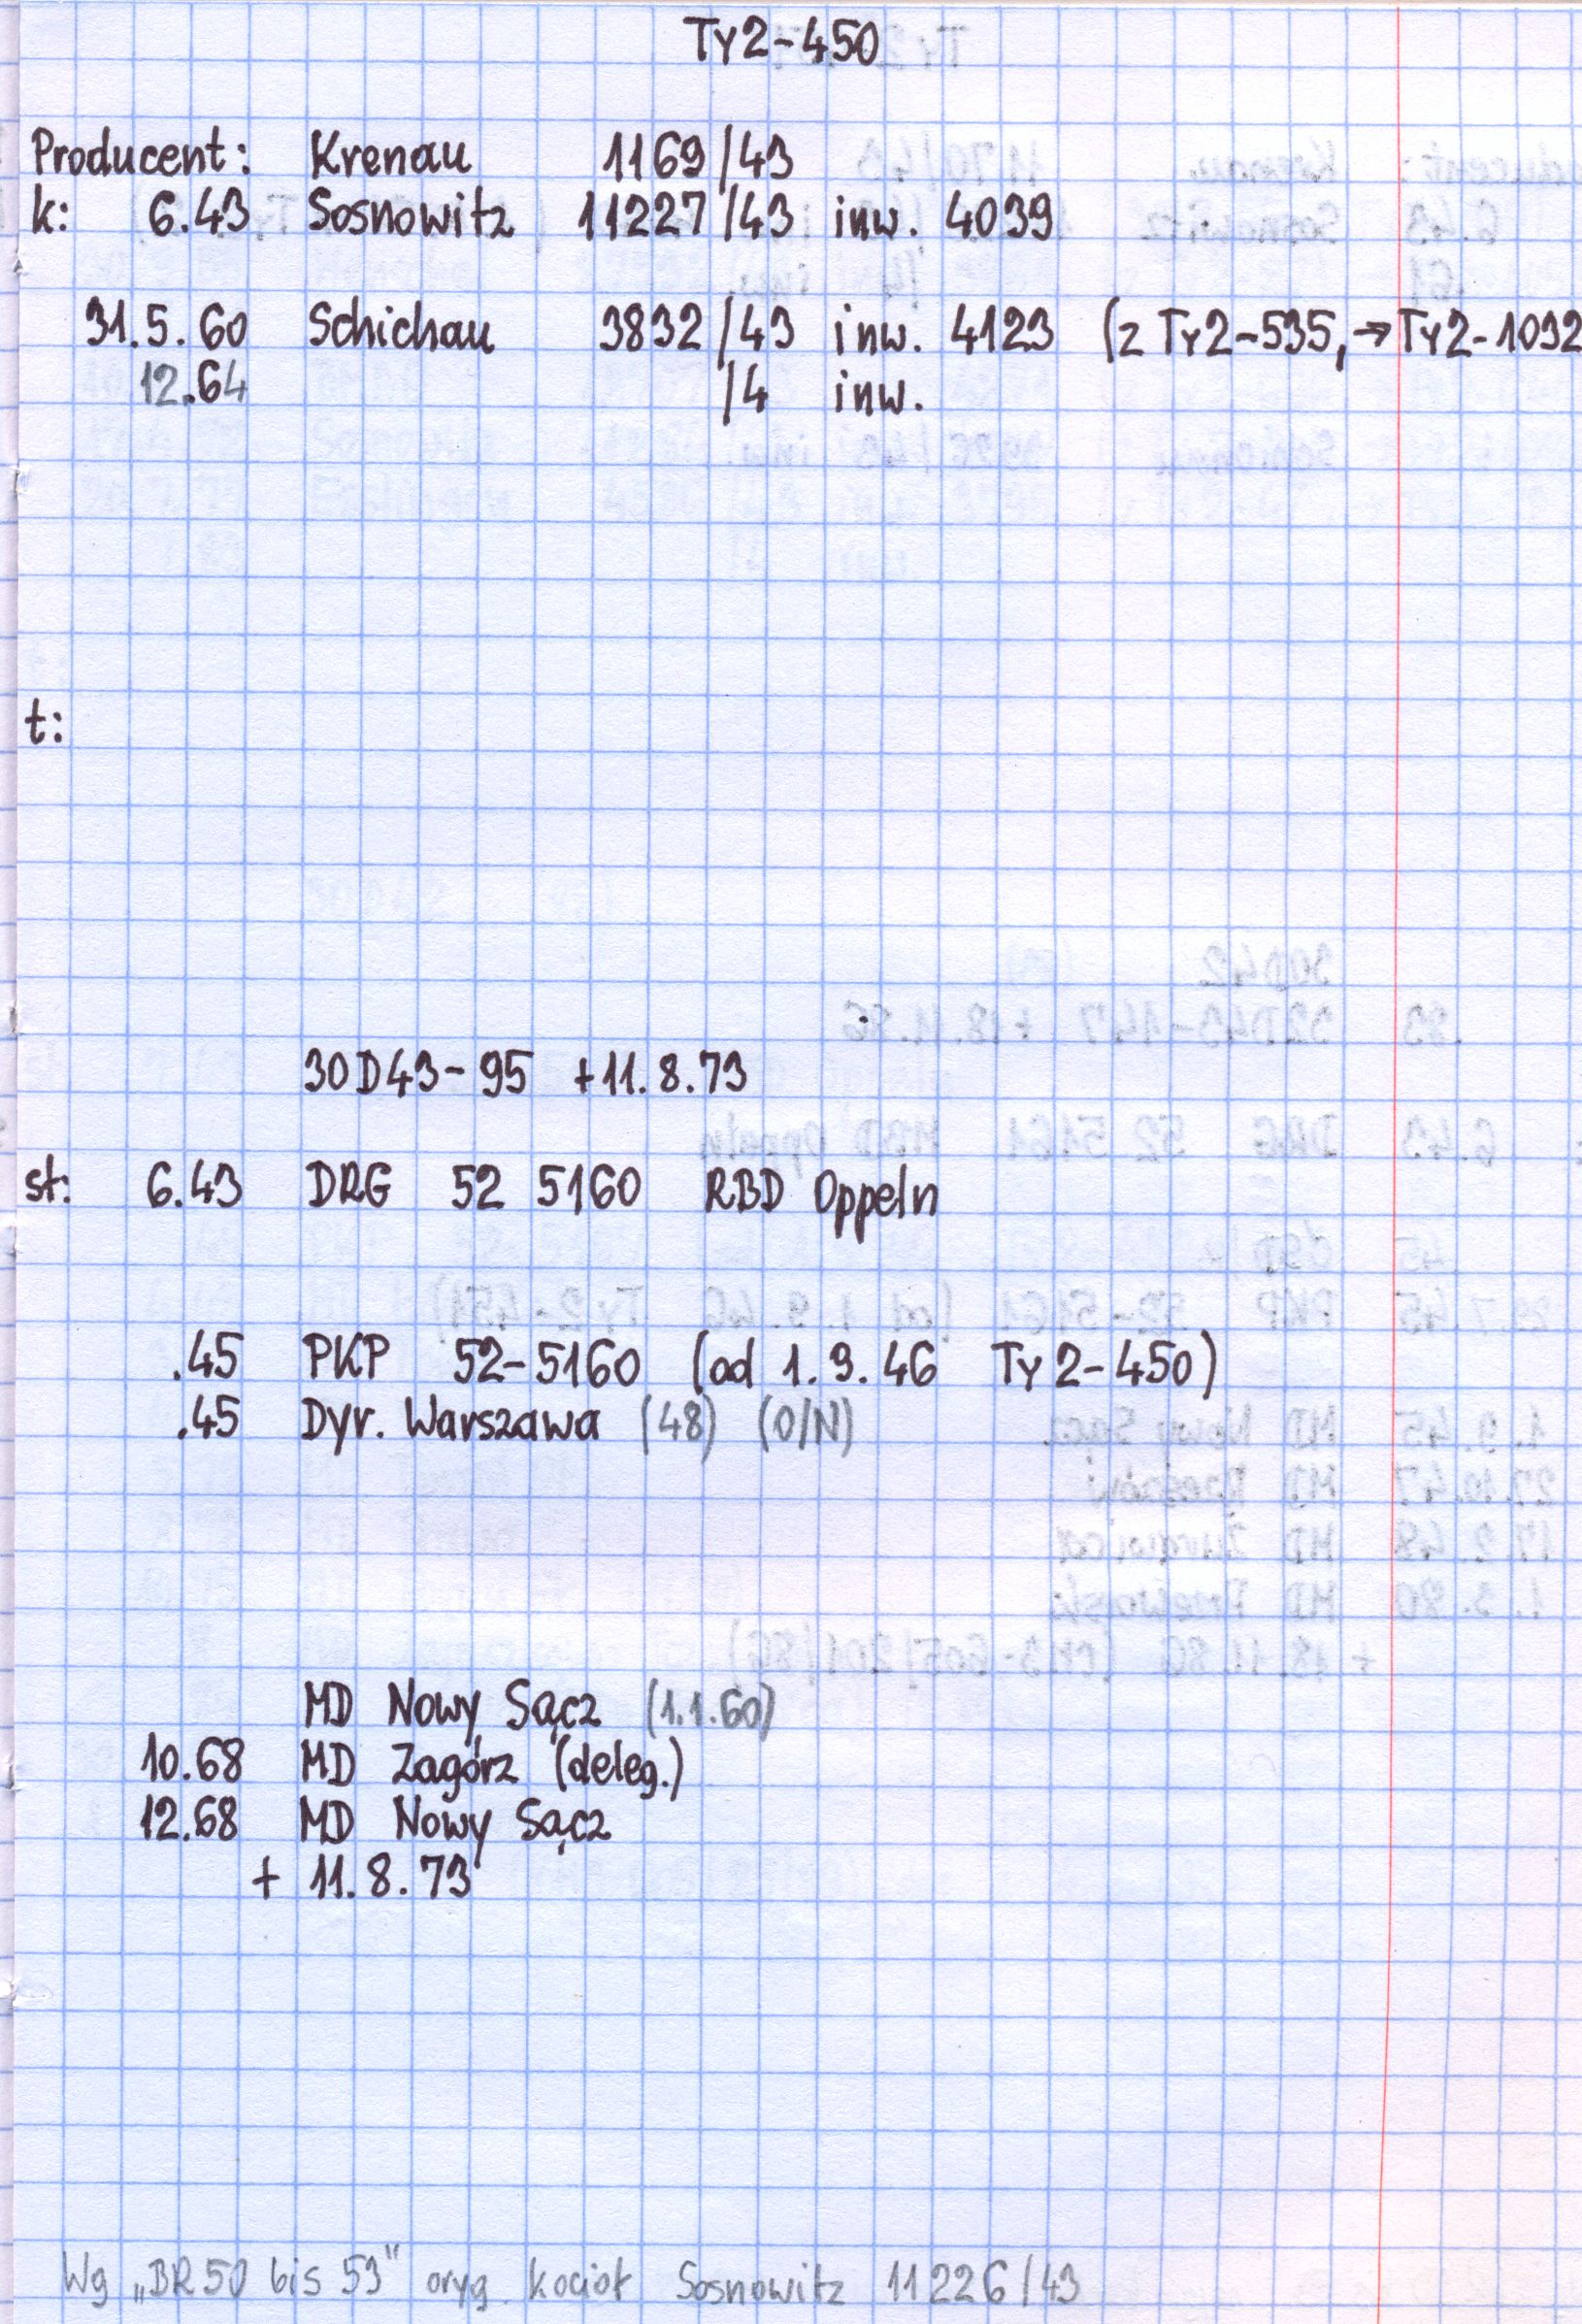 Ty2-450
Producent: Krenau 1169/43
k: 6.43 Sosnowitz 11227/43 inw. 4039
31.5.60 Schichau 3832/43 inw. 4123 (z Ty2-535, → Ty2-1032
12.64 /4 inw.
t:
30D43-95 +11.8.73
st: 6.43 DRG 52 5160 RBD Oppeln
.45 PKP 52-5160 (od 1.9.46 Ty2-450)
.45 Dyr. Warszawa (48) (O/N)
MD Nowy Sącz (1.1.60)
10.68 MD Zagórz (deleg.)
12.68 MD Nowy Sącz
+ 11.8.73
Wg „BR50 bis 53" oryg. kocioł Sosnowitz 11226/43